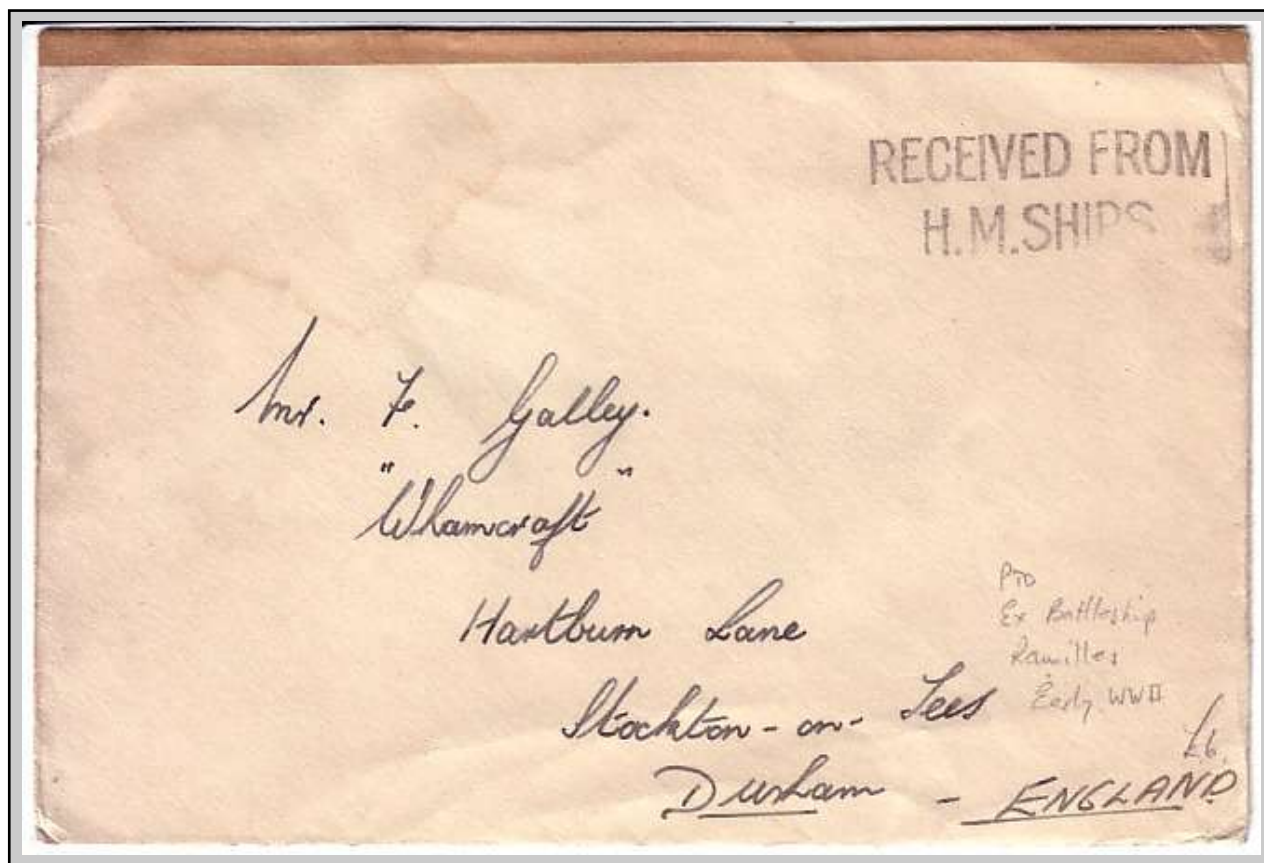 RECEIVED FROM
H.M.SHIPS
Mr. F. Galley.
"Whamcroft"
Hartburn Lane
Stockton-on-Tees
Durham - ENGLAND
PTO
Ex Battleship
Ramilles
Early WWII
£6.